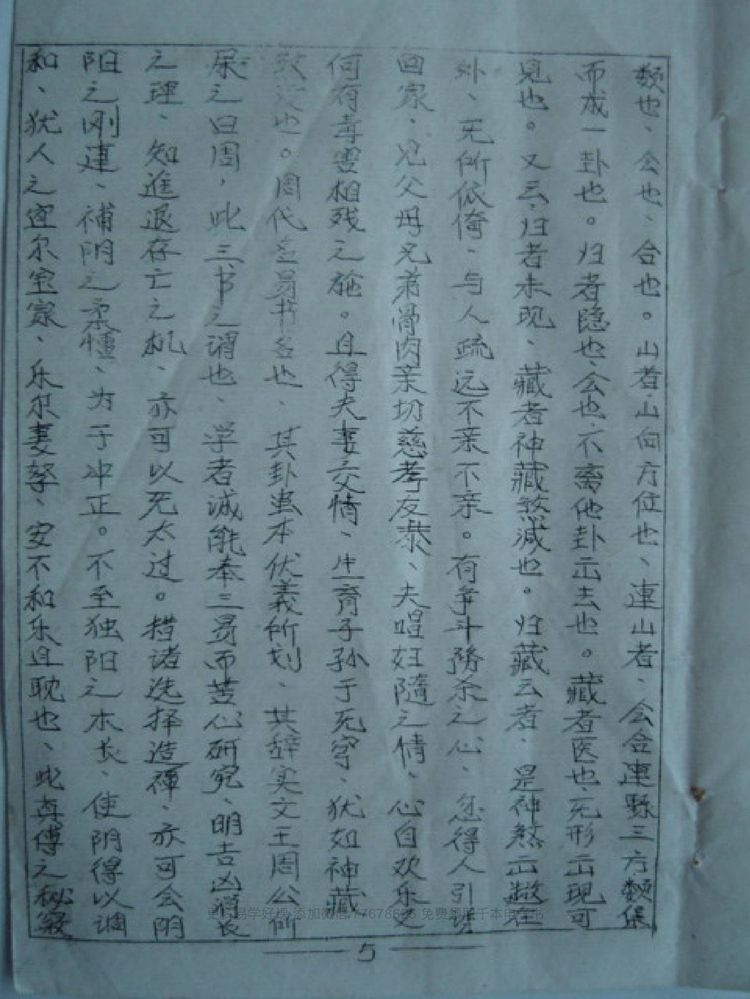 数也、公也、合也。山者、山向方位也、連山者、会合連縣三方类集
而成一卦也。归者隐也、公也、不离他卦而去也。藏者医也、无形而现可
見也。又云、归者未现、藏者神藏煞減也。归藏云者、是神煞而散在
外、无所依倚、与人疏远不亲不亲。有争斗勝杀之心、怎得人引
回家、見父母兄弟骨肉亲切慈孝友恭、夫唱妇隨之情、心自欢乐
何有毒害相残之施。且得夫妻交情、生育子孙于无穷、犹如神藏
也。周代易书名也、其卦虽本伏義所划、其辞实文王周公所
之曰周，此三书之谓也、学者诚能本三易而苦心研究、明吉凶
之理、知進退存亡之机、亦可以无太过。措诸选择造、亦可会阴
阳之刚連、補阴之柔、为于冲正。不至独阳之不长、使阴得以调
和、犹人之宜尔室家、乐尔妻孥、安不和乐且耽也、此真傳之秘
5